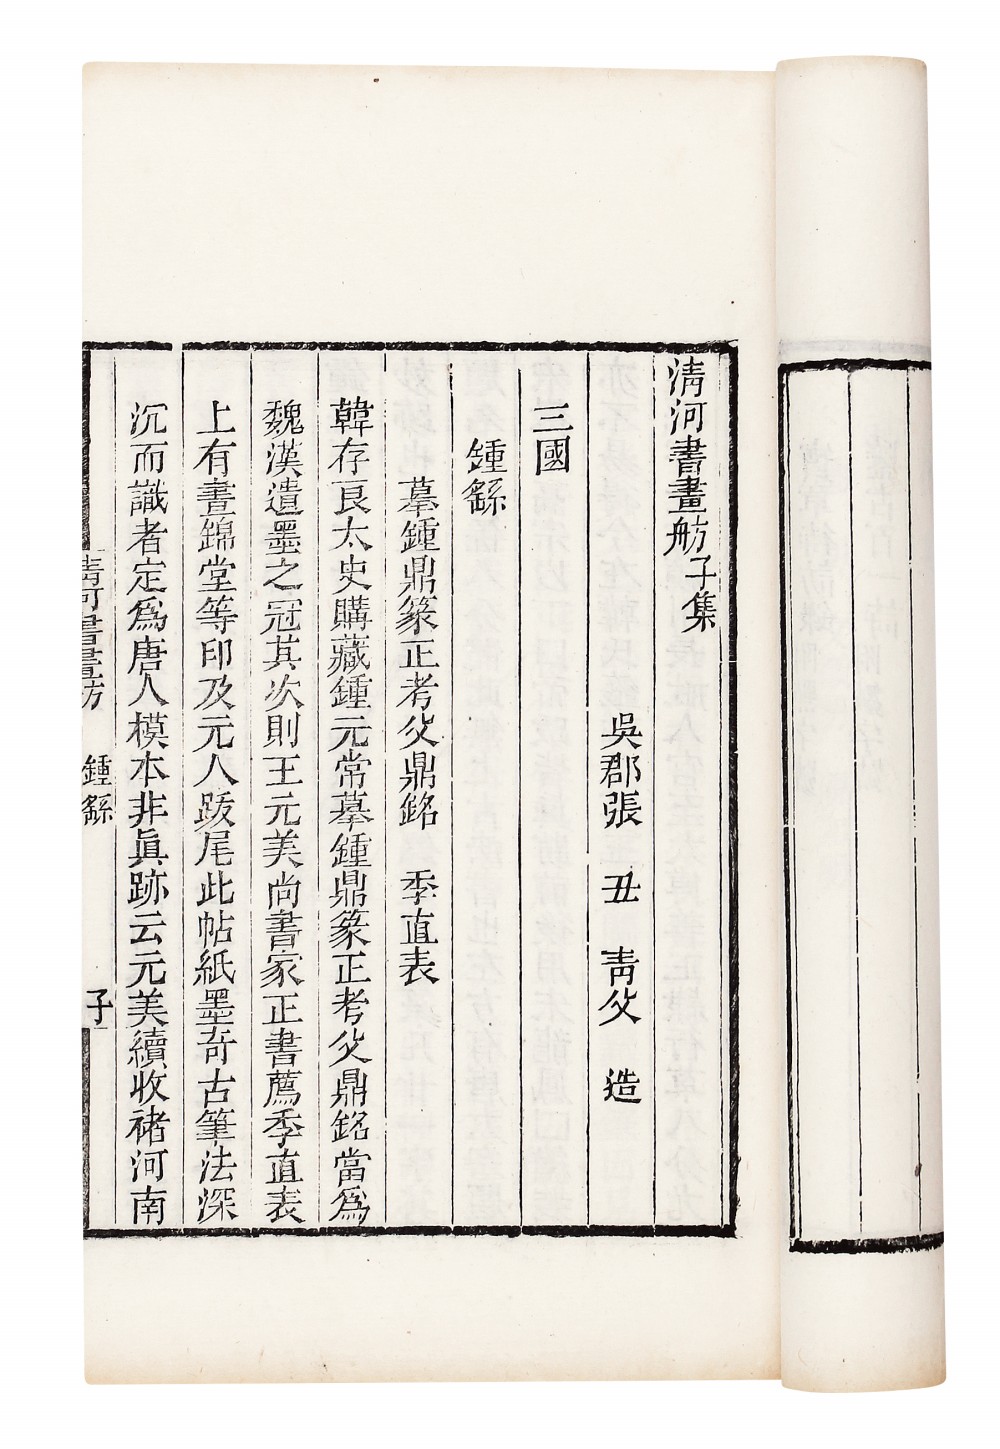 清河書畫舫子集
吳郡張 丑 青父 造
三國
鍾繇
摹鍾鼎篆正考父鼎銘 季直表
韓存良太史購藏鍾元常摹鍾鼎篆正考父鼎銘當爲
魏漢遺墨之冠其次則王元美尚書家正書薦季直表
上有晝錦堂等印及元人跋尾此帖紙墨奇古筆法深
沉而識者定爲唐人模本非眞跡云元美續收褚河南
清河書畫舫 鍾繇 子